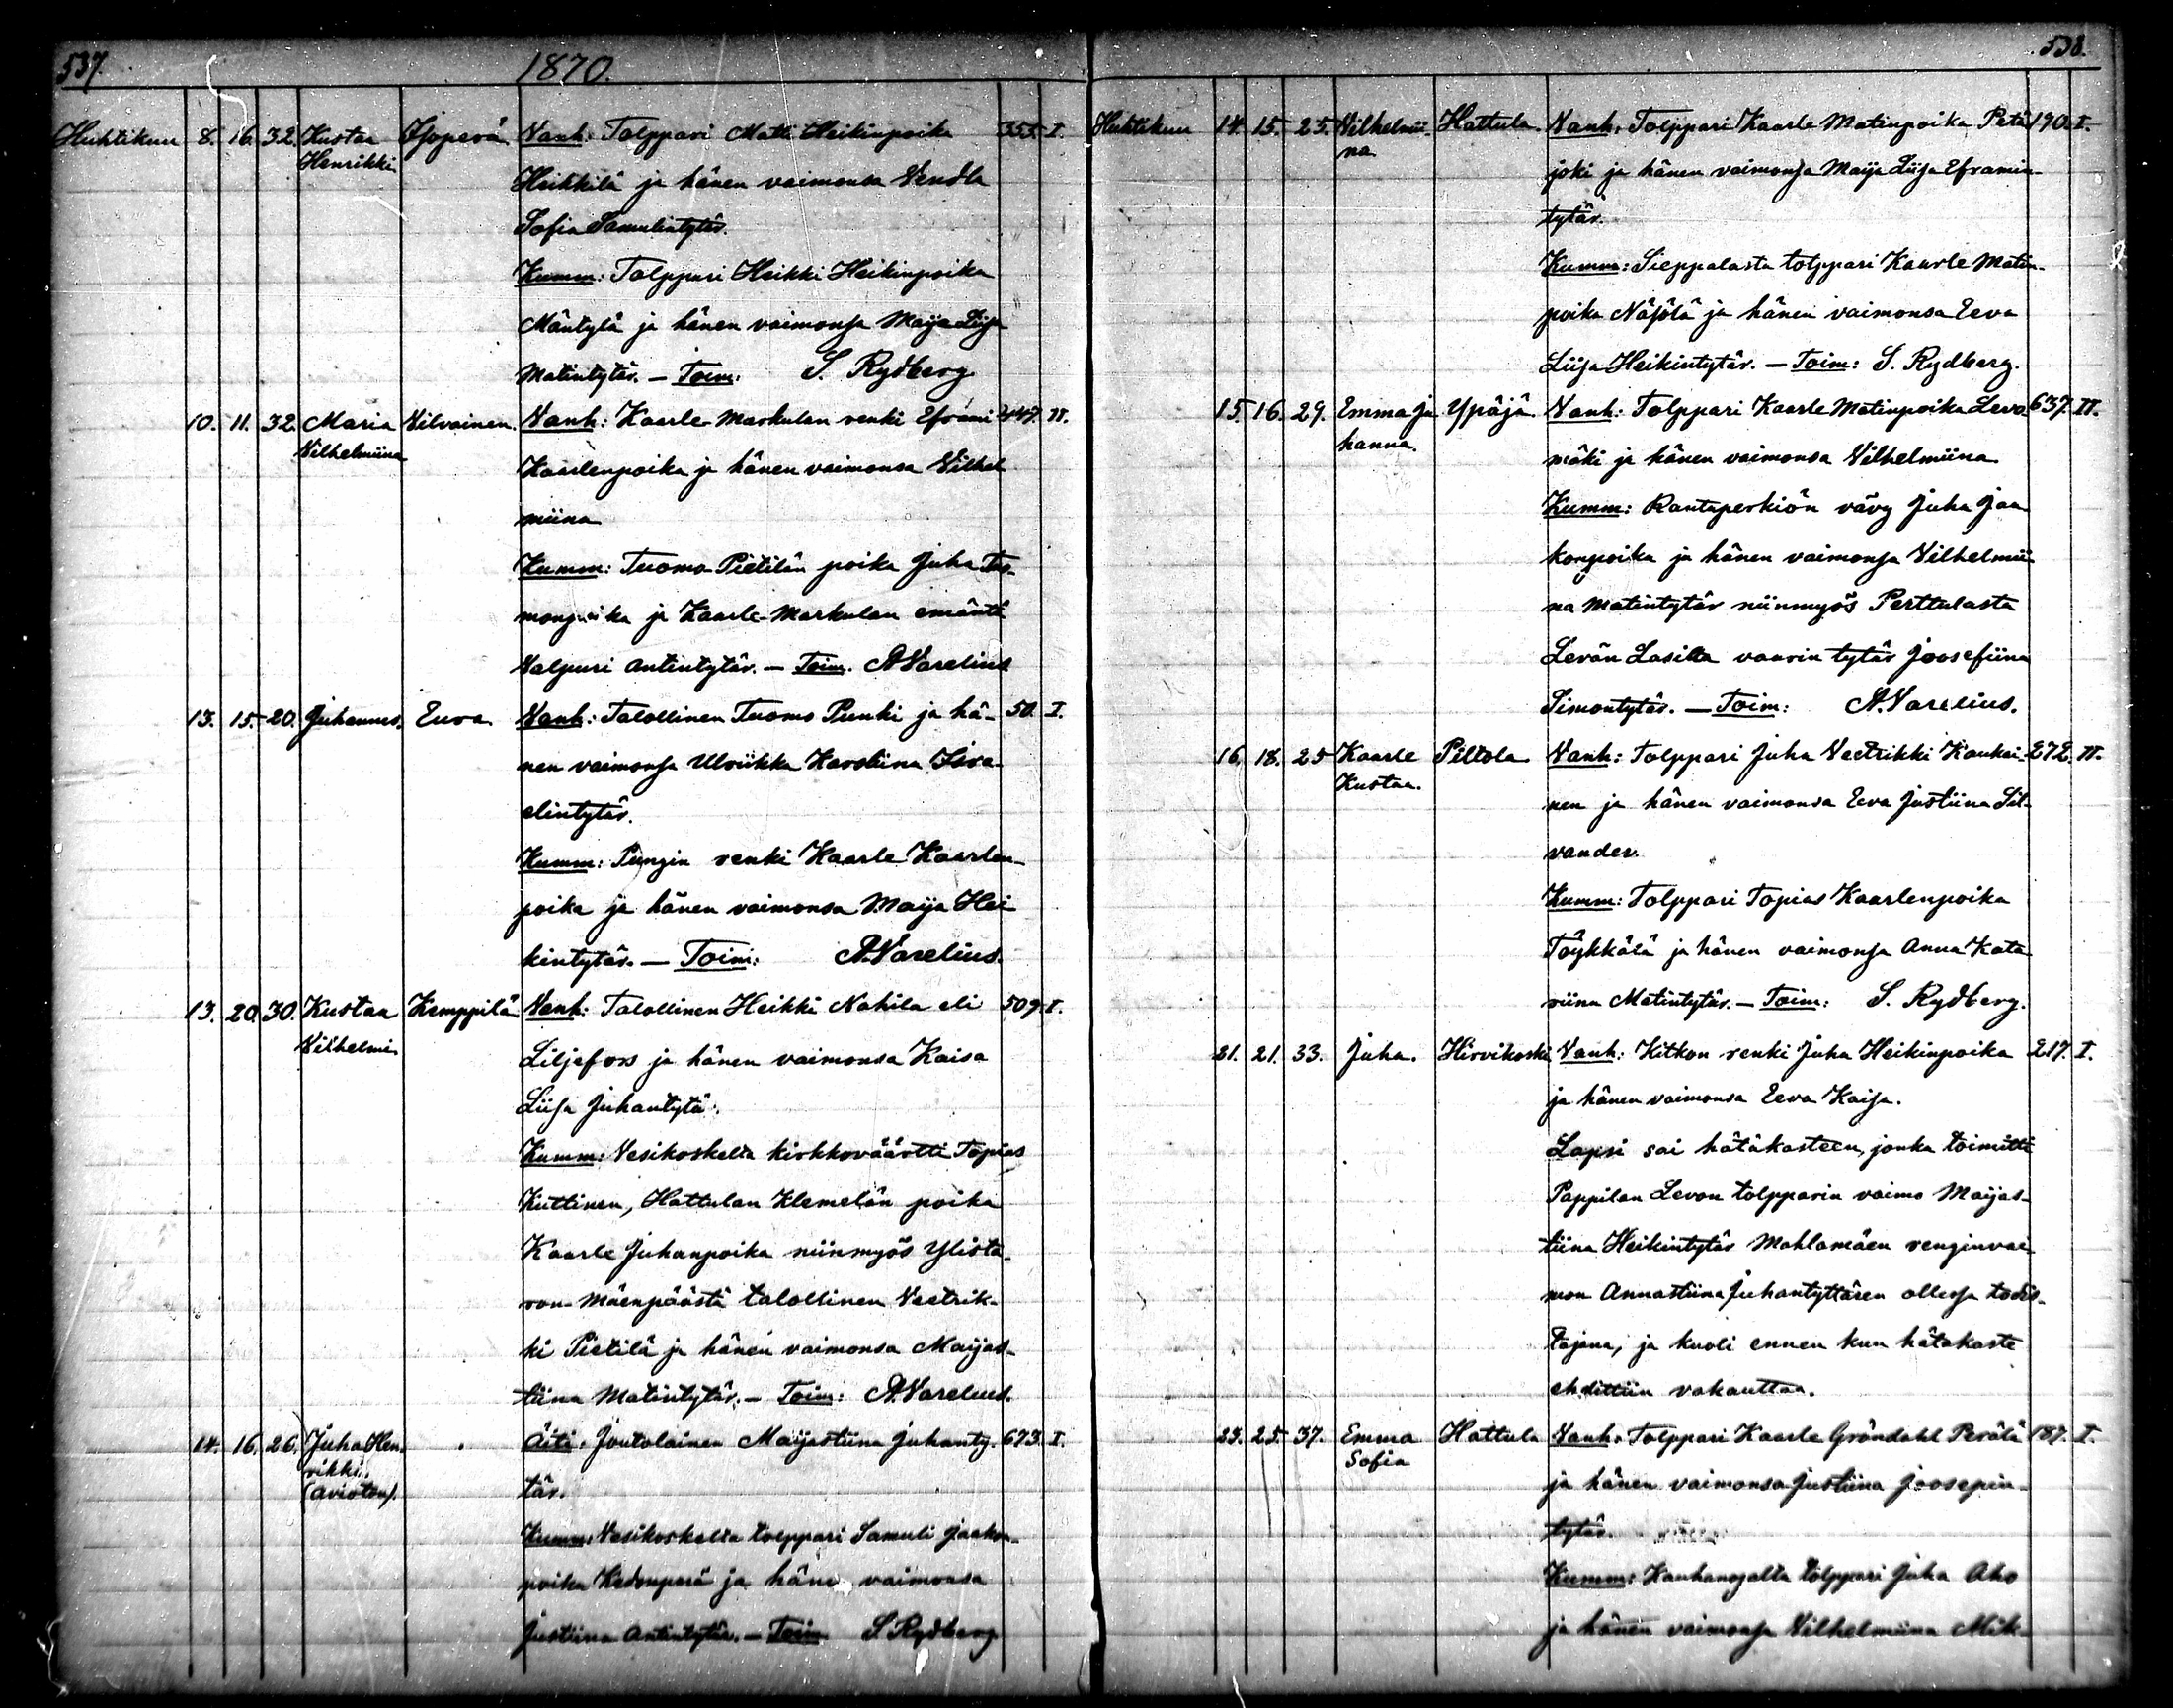 537.
1870.
Huhtikuu 8. 16. 32. Kustaa Isoperä Vanh: Tolppari Matti Heikinpoika 353. I.
Henrikki
Heikkilä ja hänen vaimonsa Vendla
Sofia Samulintytär.
Kumm: Tolppari Heikki Heikinpoika
Mäntylä ja hänen vaimonsa Maija Liisa
Matintytär. — Toim: S. Rydberg
10. 11. 32. Maria Vilvainen. Vanh: Kaarle-Markulan renki Eframi 447. II.
Vilhelmiina
Kaarlenpoika ja hänen vaimonsa Vilhel
miina
Kumm: Tuomo-Pietilän poika Juha Tuo-
monpoika ja Kaarle-Markulan emäntä
Valpuri Antintytär. — Toim. A. Varelius
13. 15. 20. Juhannes. Euva Vanh: Talollinen Tuomo Punki ja hä- 50. I.
nen vaimonsa Ulriikka Karoliina Isra-
elintytär.
Kumm: Pungin renki Kaarle Kaarlen-
poika ja hänen vaimonsa Maija Hei
kintytär. — Toim: A. Varelius.
13. 20. 30. Kustaa Kemppilä Vanh: Talollinen Heikki Nahila eli 509. I.
Vilhelmi
Liljefors ja hänen vaimonsa Kaisa
Liisa Juhantytär.
Kumm: Vesikoskelta kirkkoväärtti Topias
Kuttinen, Hattulan Klemelän poika
Kaarle Juhanpoika niinmyös Ylista-
ron-Mäenpäästä talollinen Veetrik-
ki Pietilä ja hänen vaimonsa Maijas-
tiina Matintytär. — Toim: A. Varelius.
14. 16. 26. Juha Hen- Äiti. Joutolainen Maijastiina Juhanty- 673. I.
rikki.
(avioton).
tär.
Kumm: Vesikoskelta tolppari Samuli Jaakon-
poika Kedonperä ja hänen vaimonsa
Justiina Antintytär. — Toim S Rydberg
538.
Huhtikuu 14. 15. 25. Vilhelmii- Hattula. Vanh: Tolppari Kaarle Matinpoika Petä 190. I.
na
joki ja hänen vaimonsa Maija Liisa Eframin-
tytär.
Kumm: Sieppalasta tolppari Kaarle Matin-
poika Näsölä ja hänen vaimonsa Eeva
Liisa Heikintytär. — Toim: S. Rydberg.
15. 16. 29. Emma Jo Ypäjä. Vanh: Tolppari Kaarle Matinpoika Leva 637. II.
hanna.
mäki ja hänen vaimonsa Vilhelmiina
Kumm: Rantaperkiön vävy Juha Jaa
konpoika ja hänen vaimonsa Vilhelmii
na Matintytär niinmyös Perttulasta
Levän Lasilta vaarin tytär Joosefiina
Simontytär. — Toim: A. Varelius.
16. 18. 25 Kaarle Piltola Vanh: Tolppari Juha Veetrikki Kaukai- 272. II.
Kustaa.
nen ja hänen vaimonsa Eeva Justiina Sil-
vander.
Kumm: Tolppari Topias Kaarlenpoika
Töykkälä ja hänen vaimonsa Anna Kata
riina Matintytär. — Toim: S. Rydberg.
21. 21. 33. Juha. Hirvikoski Vanh: Kitkon renki Juha Heikinpoika 217. I.
ja hänen vaimonsa Eeva Kaisa.
Lapsi sai hätäkasteen, jonka toimitti
Pappilan Levon tolpparin vaimo Maijas-
tiina Heikintytär Mahlamäen renginvai
mon Annastiina Juhantyttären ollessa todis-
tajana, ja kuoli ennen kun hätäkaste
ehdittiin vakauttaa.
23. 25. 37. Emma Hattula Vanh. Tolppari Kaarle Gröndahl Perälä 187. I.
Sofia
ja hänen vaimonsa Justiina Joosepin-
tytär.
Kumm: Kauhanojalta tolppari Juha Aho
ja hänen vaimonsa Vilhelmiina Mik-